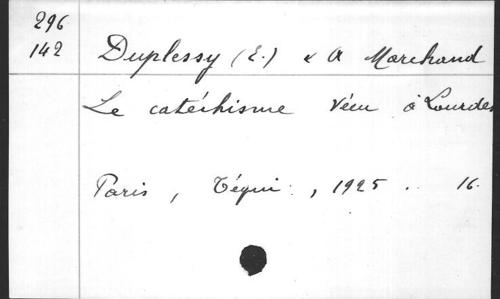 296
142
Duplessy (E.) & A Marchand
Le catéchisme vécu à Lourdes
Paris, Téqui, 1925. 16.